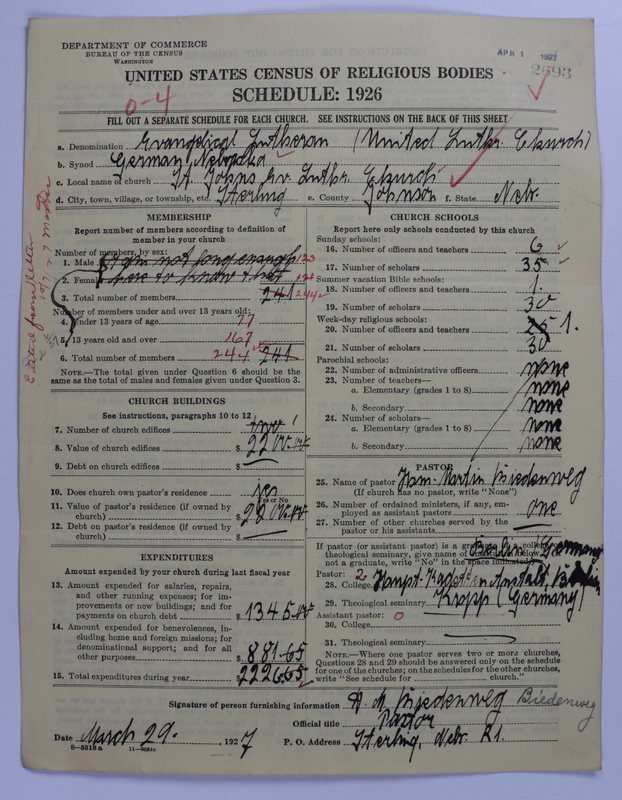 DEPARTMENT OF COMMERCE
BUREAU OF THE CENSUS
WASHINGTON
APR 1 1927
2693
UNITED STATES CENSUS OF RELIGIOUS BODIES
SCHEDULE: 1926
0-4
FILL OUT A SEPARATE SCHEDULE FOR EACH CHURCH. SEE INSTRUCTIONS ON THE BACK OF THIS SHEET
a. Denomination Evangelical Lutheran (United Luthr. Church)
b. Synod German Nebraska
c. Local name of church St. Johns Ev. Luthr. Church
d. City, town, village, or township, etc. Sterling e. County Johnson f. State Nebr.
MEMBERSHIP
Report number of members according to definition of
member in your church
Number of members, by sex:
1. Male I am not long enough 120
2. Female here to know that 124
3. Total number of members 241 244
Number of members under and over 13 years old:
4. Under 13 years of age 77
5. 13 years old and over 167
6. Total number of members 244 241
NOTE.—The total given under Question 6 should be the
same as the total of males and females given under Question 3.
Edited from letter
CHURCH BUILDINGS
See instructions, paragraphs 10 to 12
7. Number of church edifices two 1
8. Value of church edifices $ 2200.00
9. Debt on church edifices $
10. Does church own pastor's residence yes
Yes or No
11. Value of pastor's residence (if owned by
church) $ 2200.00
12. Debt on pastor's residence (if owned by
church) $
EXPENDITURES
Amount expended by your church during last fiscal year
13. Amount expended for salaries, repairs,
and other running expenses; for im-
provements or new buildings; and for
payments on church debt $ 1345.00
14. Amount expended for benevolences, in-
cluding home and foreign missions; for
denominational support; and for all
other purposes $ 881.65
15. Total expenditures during year $ 2226.65
CHURCH SCHOOLS
Report here only schools conducted by this church
Sunday schools:
16. Number of officers and teachers 6
17. Number of scholars 35
Summer vacation Bible schools:
18. Number of officers and teachers 1.
19. Number of scholars 30
Week-day religious schools:
20. Number of officers and teachers 25 1.
21. Number of scholars 30
Parochial schools:
22. Number of administrative officers none
23. Number of teachers—
a. Elementary (grades 1 to 8) none
b. Secondary none
24. Number of scholars—
a. Elementary (grades 1 to 8) none
b. Secondary none
PASTOR
25. Name of pastor Herm. Martin Biedenweg
(If church has no pastor, write "None")
26. Number of ordained ministers, if any, em-
ployed as assistant pastors one
27. Number of other churches served by the
pastor or his assistants
If pastor (or assistant pastor) is a graduate of a college or
theological seminary, give name of institution below;
not a graduate, write "No" in the space indicated
Berlin Germany
Pastor: 2
28. College
29. Theological seminary Kropp (Germany)
Assistant pastor: 0
30. College
31. Theological seminary
NOTE.—Where one pastor serves two or more churches,
Questions 28 and 29 should be answered only on the schedule
for one of the churches; on the schedules for the other churches,
write "See schedule for church."
Signature of person furnishing information H. M. Biedenweg Biedenweg
Official title Pastor
Date March 29., 1927 P. O. Address Sterling, Nebr. R1.
8-5518 a